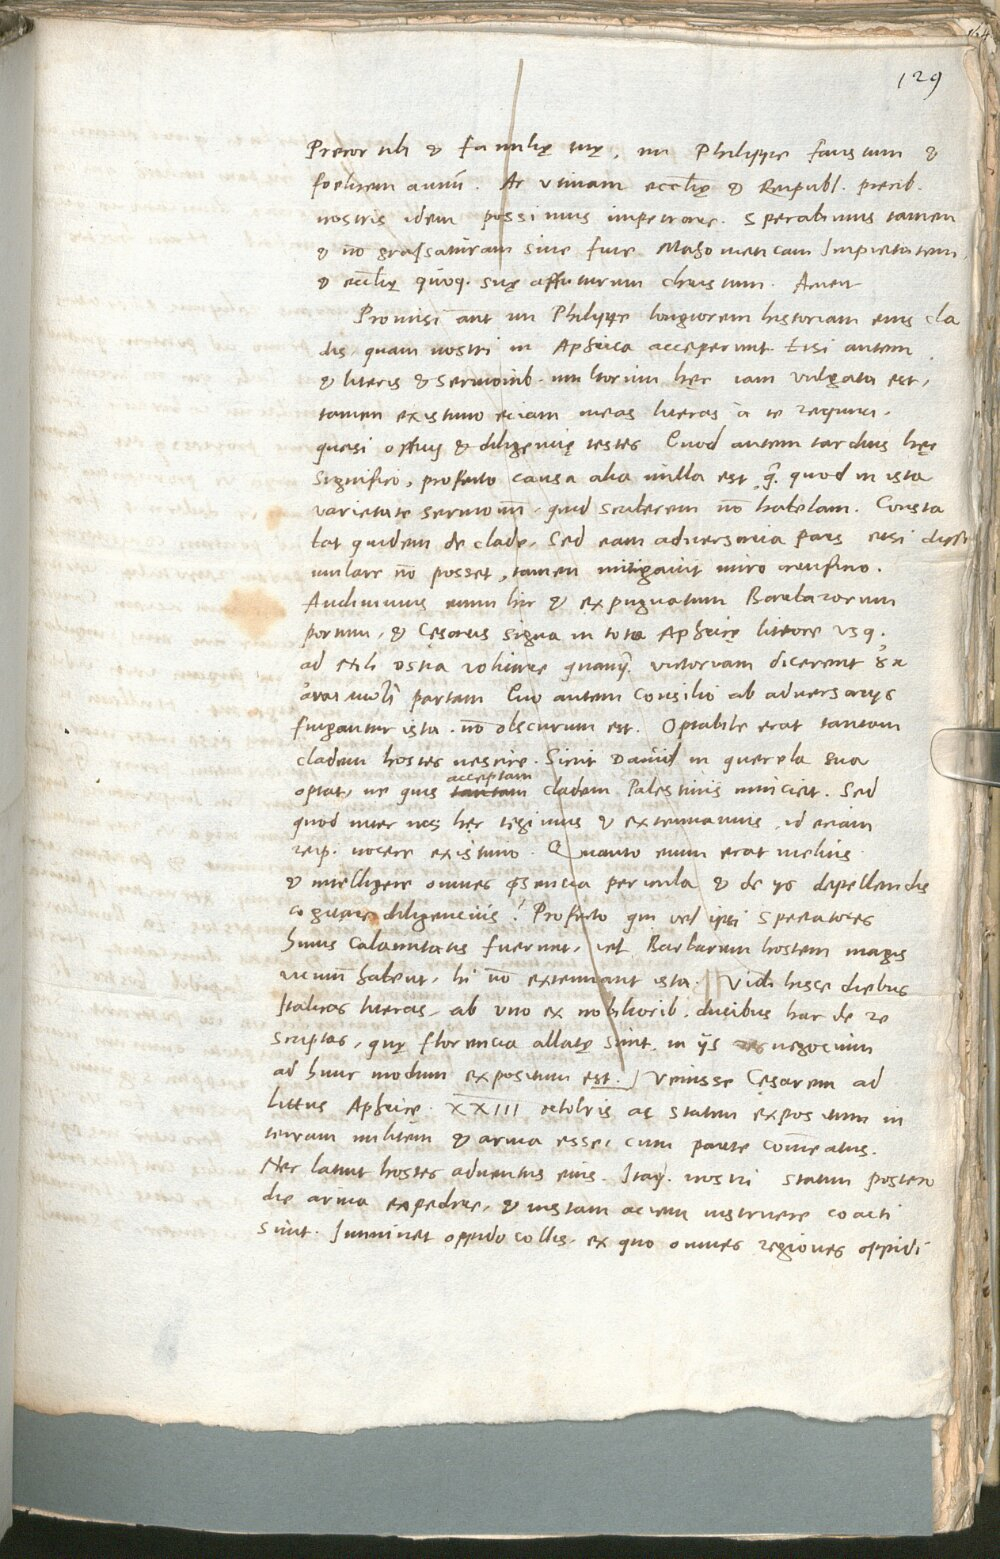 129
Precor tibi & familię tuę, mi Philippe faustum &
foelicem annū. Ac vtinam eccl̄ię & Reipubl. precib.
nostris idem possimus impetrare. Sperabimus tamen
& nō grassaturam sine fine Mahometicam Impietatem,
& eccl̄ię quoq. suę affuturum christum. Amen
Promisi aūt mi Philippe longiorem historiam eius cla
dis, quam nostri in Aphrica acceperunt Etsi autem
& literis & sermonib. multorum hęc iam vulgata est,
tamen existimo eciam meas literas à te requiri,
quasi officij & diligencię testes Quod autem tardius hęc
significo, profecto causa alia nulla est, q̄. quod in ista
varietate sermonū, quid scriberem nō habebam. Consta
bat quidem de clade, Sed eam adversaria pars etsi dissi
mulare nō posset, tamen mitigavit miro artificio.
Audivimus enim hic & expugnatum Barbarorum
portum, & Cęsaris signa in toto Aphricę littore vsq.
ad Nili ostia volitare quamq̄. victoriam dicerent
partam Quo autem consilio ab adversarijs
fingantur ista, nō obscurum est. Optabile erat tantam
cladem hostes nescire. Sicut David in querela sua
acceptam
optat, ne quis tantam cladem Palestinis nunciet. Sed
quod inter nos hęc tegimus & extenuamus, id eciam
reip. nocere existimo. Quanto enim erat melius
& intelligere omnes p̄sencia pericula & de ijs depellendis
cogitare diligencius? Profecto qui vel ipsi spectatores
huius calamitatis fuerunt, vel Barbarum hostem magis
vicinū habent, hi nō extenuant ista. Vidi hisce diebus
Italicas literas, ab vno ex nobiliorib. ducibus hac de re
scriptas, quę Florencia allatę sunt, in ijs negocium
ad hunc modum expositum est. Venisse Cęsarem ad
littus Aphricę XXIII octobris ac statim expositum in
terram militem & arma esse, cum parte com̄eatus.
Nec latuit hostes adventus eius. Itaq. nostri statim postero
die arma expedire, & iustam aciem instruere coacti
sunt. Imminet oppido collis, ex quo omnes regiones oppidi